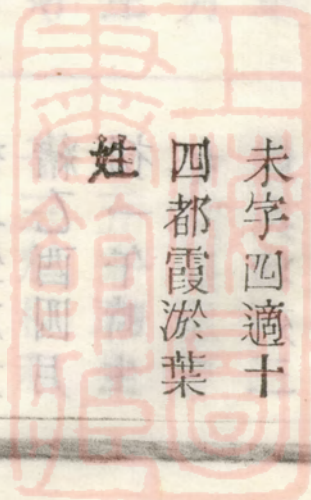 未字四適十
四都霞淤葉
姓